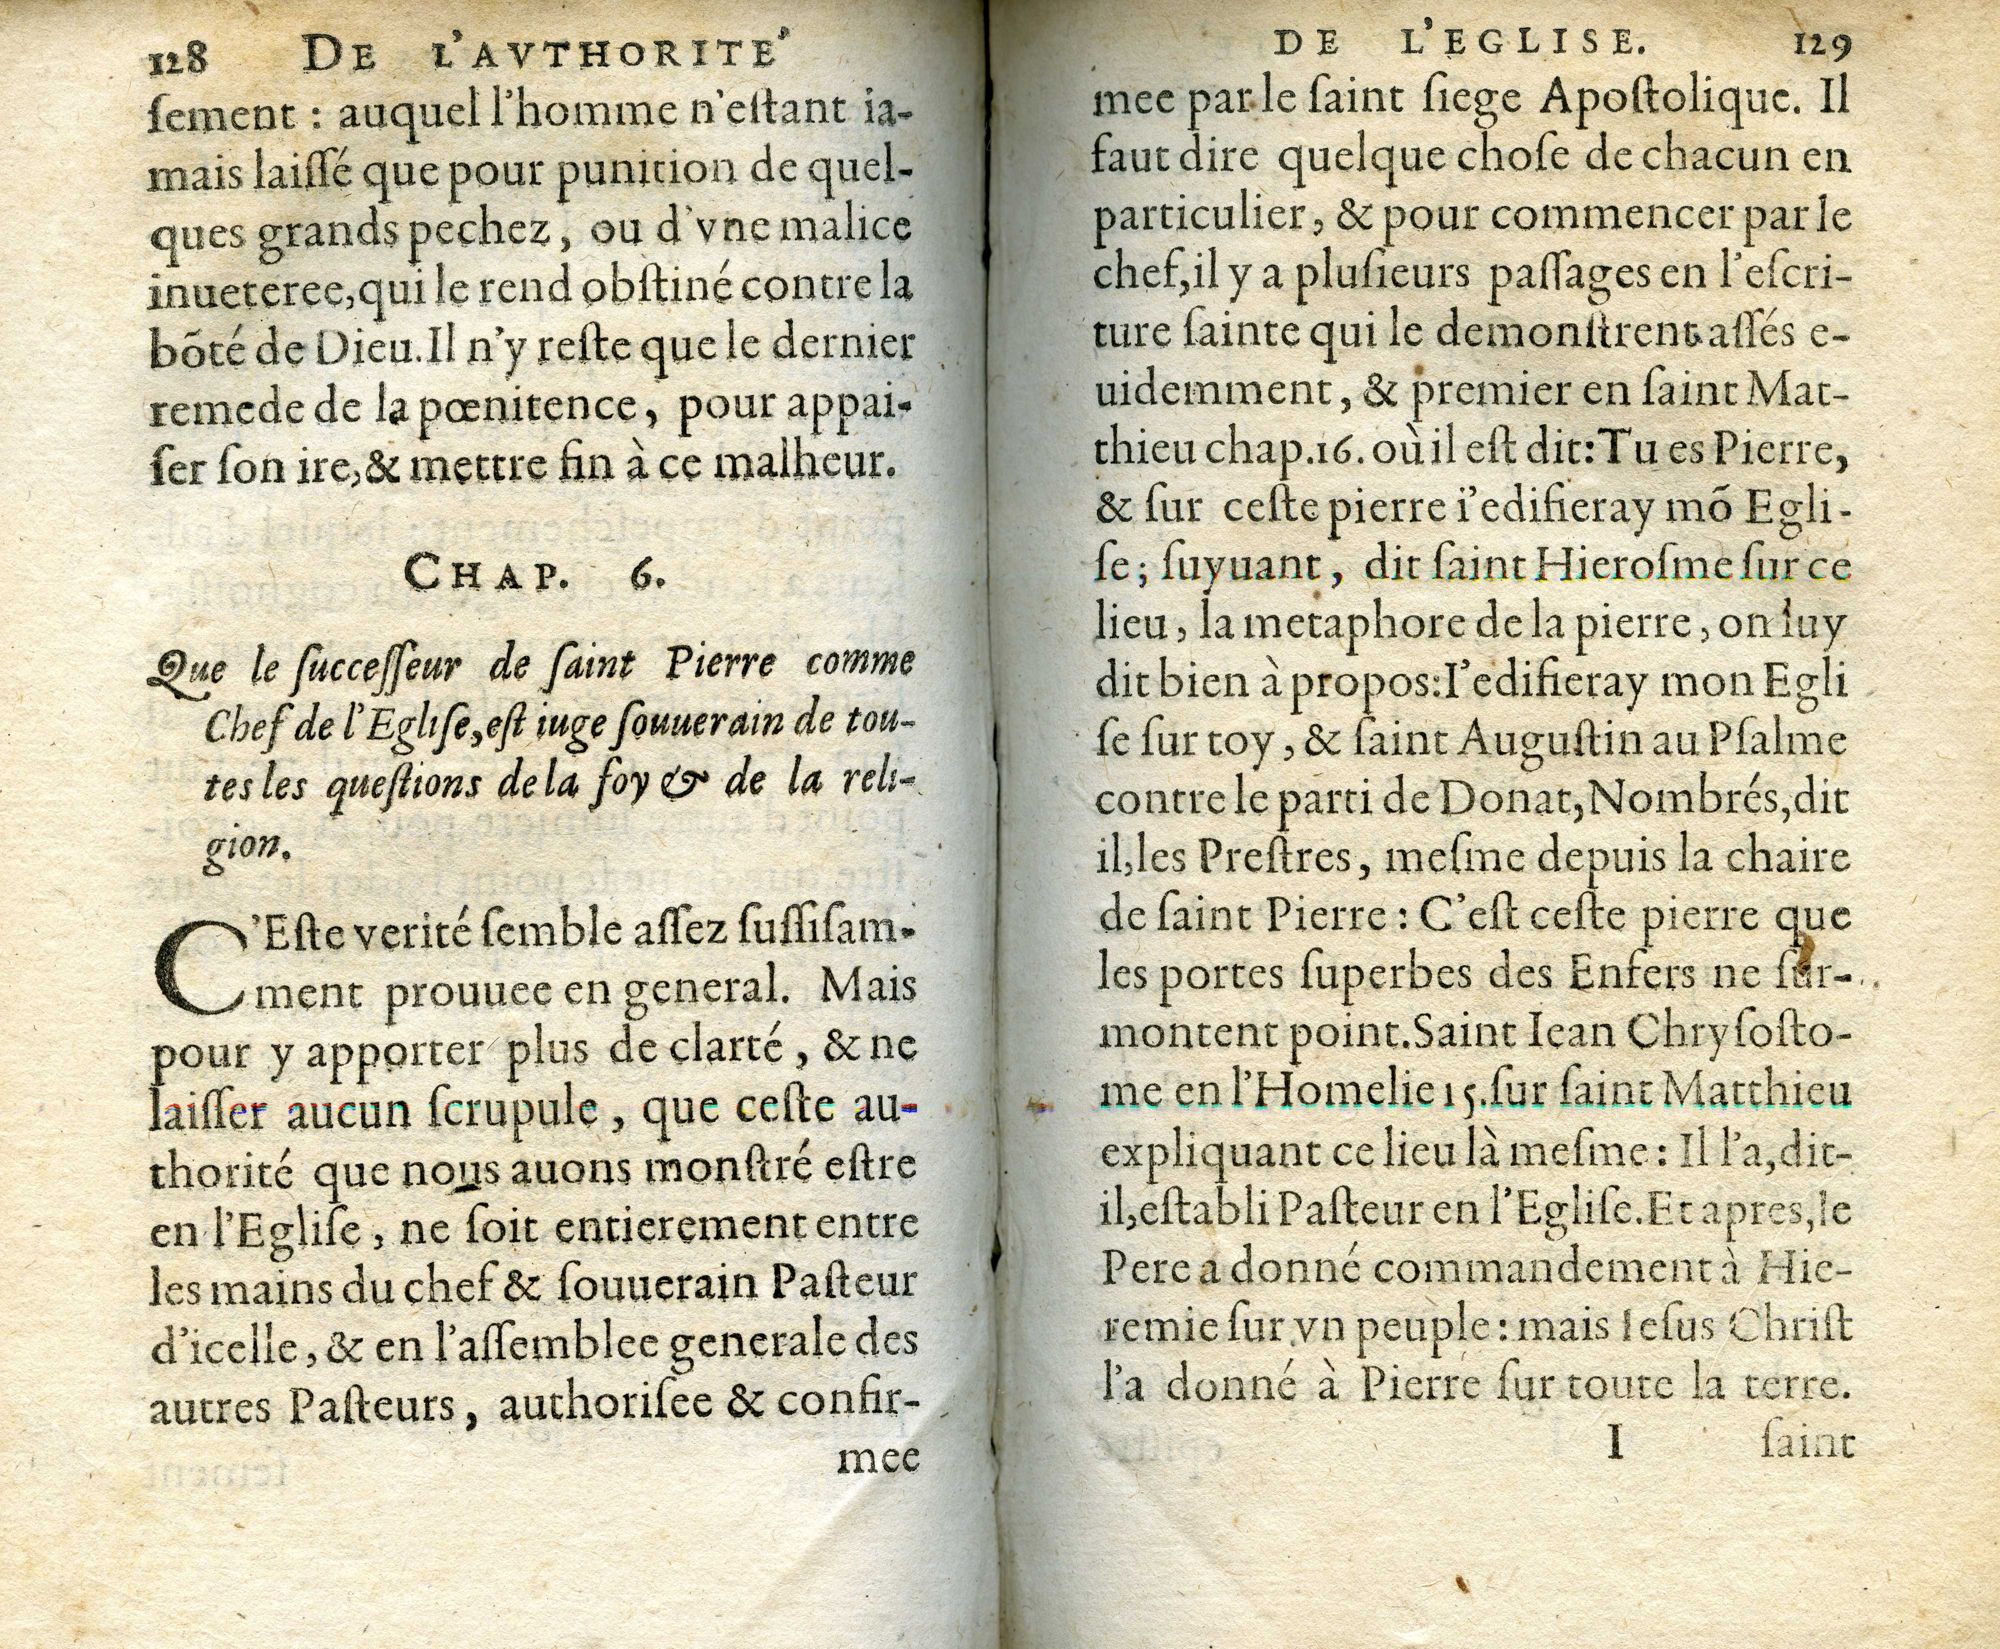 128 DE L'AVTHORITE'
ſement : auquel l'homme n'eſtant ia-
mais laiſſé que pour punition de quel-
ques grands pechez, ou d'vne malice
inueteree,qui le rend obſtiné contre la
bõté de Dieu.Il n'y reſte que le dernier
remede de la pœnitence, pour appai-
ſer ſon ire,& mettre fin à ce malheur.
CHAP. 6.
Que le ſucceſſeur de ſaint Pierre comme
Chef de l'Egliſe,eſt iuge ſouuerain de tou-
tes les queſtions de la foy & de la reli-
gion.
C'Eſte verité ſemble aſſez ſuffiſam-
ment prouuee en general. Mais
pour y apporter plus de clarté, & ne
laiſſer aucun ſcrupule, que ceſte au-
thorité que nous auons monſtré eſtre
en l'Egliſe, ne ſoit entierement entre
les mains du chef & ſouuerain Paſteur
d'icelle, & en l'aſſemblee generale des
autres Paſteurs, authoriſee & confir-
mee
DE L'EGLISE. 129
mee par le ſaint ſiege Apoſtolique. Il
faut dire quelque choſe de chacun en
particulier, & pour commencer par le
chef,il y a pluſieurs paſſages en l'eſcri-
ture ſainte qui le demonſtrent aſſés e-
uidemment, & premier en ſaint Mat-
thieu chap.16. où il eſt dit:Tu es Pierre,
& ſur ceſte pierre i'edifieray mõ Egli-
ſe; ſuyuant, dit ſaint Hieroſme ſur ce
lieu, la metaphore de la pierre, on luy
dit bien à propos:I'edifieray mon Egli
ſe ſur toy, & ſaint Auguſtin au Pſalme
contre le parti de Donat,Nombrés,dit
il,les Preſtres, meſme depuis la chaire
de ſaint Pierre : C'eſt ceſte pierre que
les portes ſuperbes des Enfers ne ſur-
montent point.Saint Iean Chryſoſto-
me en l'Homelie 15.ſur ſaint Matthieu
expliquant ce lieu là meſme : Il l'a,dit-
il,eſtabli Paſteur en l'Egliſe.Et apres,le
Pere a donné commandement à Hie-
remie ſur vn peuple : mais Ieſus Chriſt
l'a donné à Pierre ſur toute la terre.
I ſaint